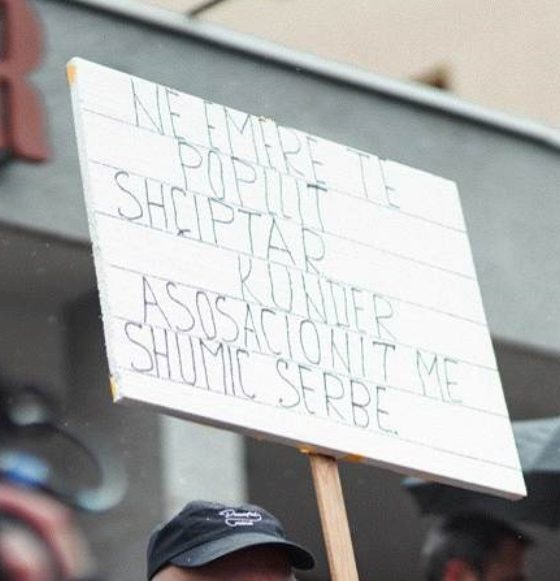 R
NE EMERE TE
POPILIT
SHÇIPTAR
KUNDER
ASOSACIONIT ME
SHUMIC SERBE.